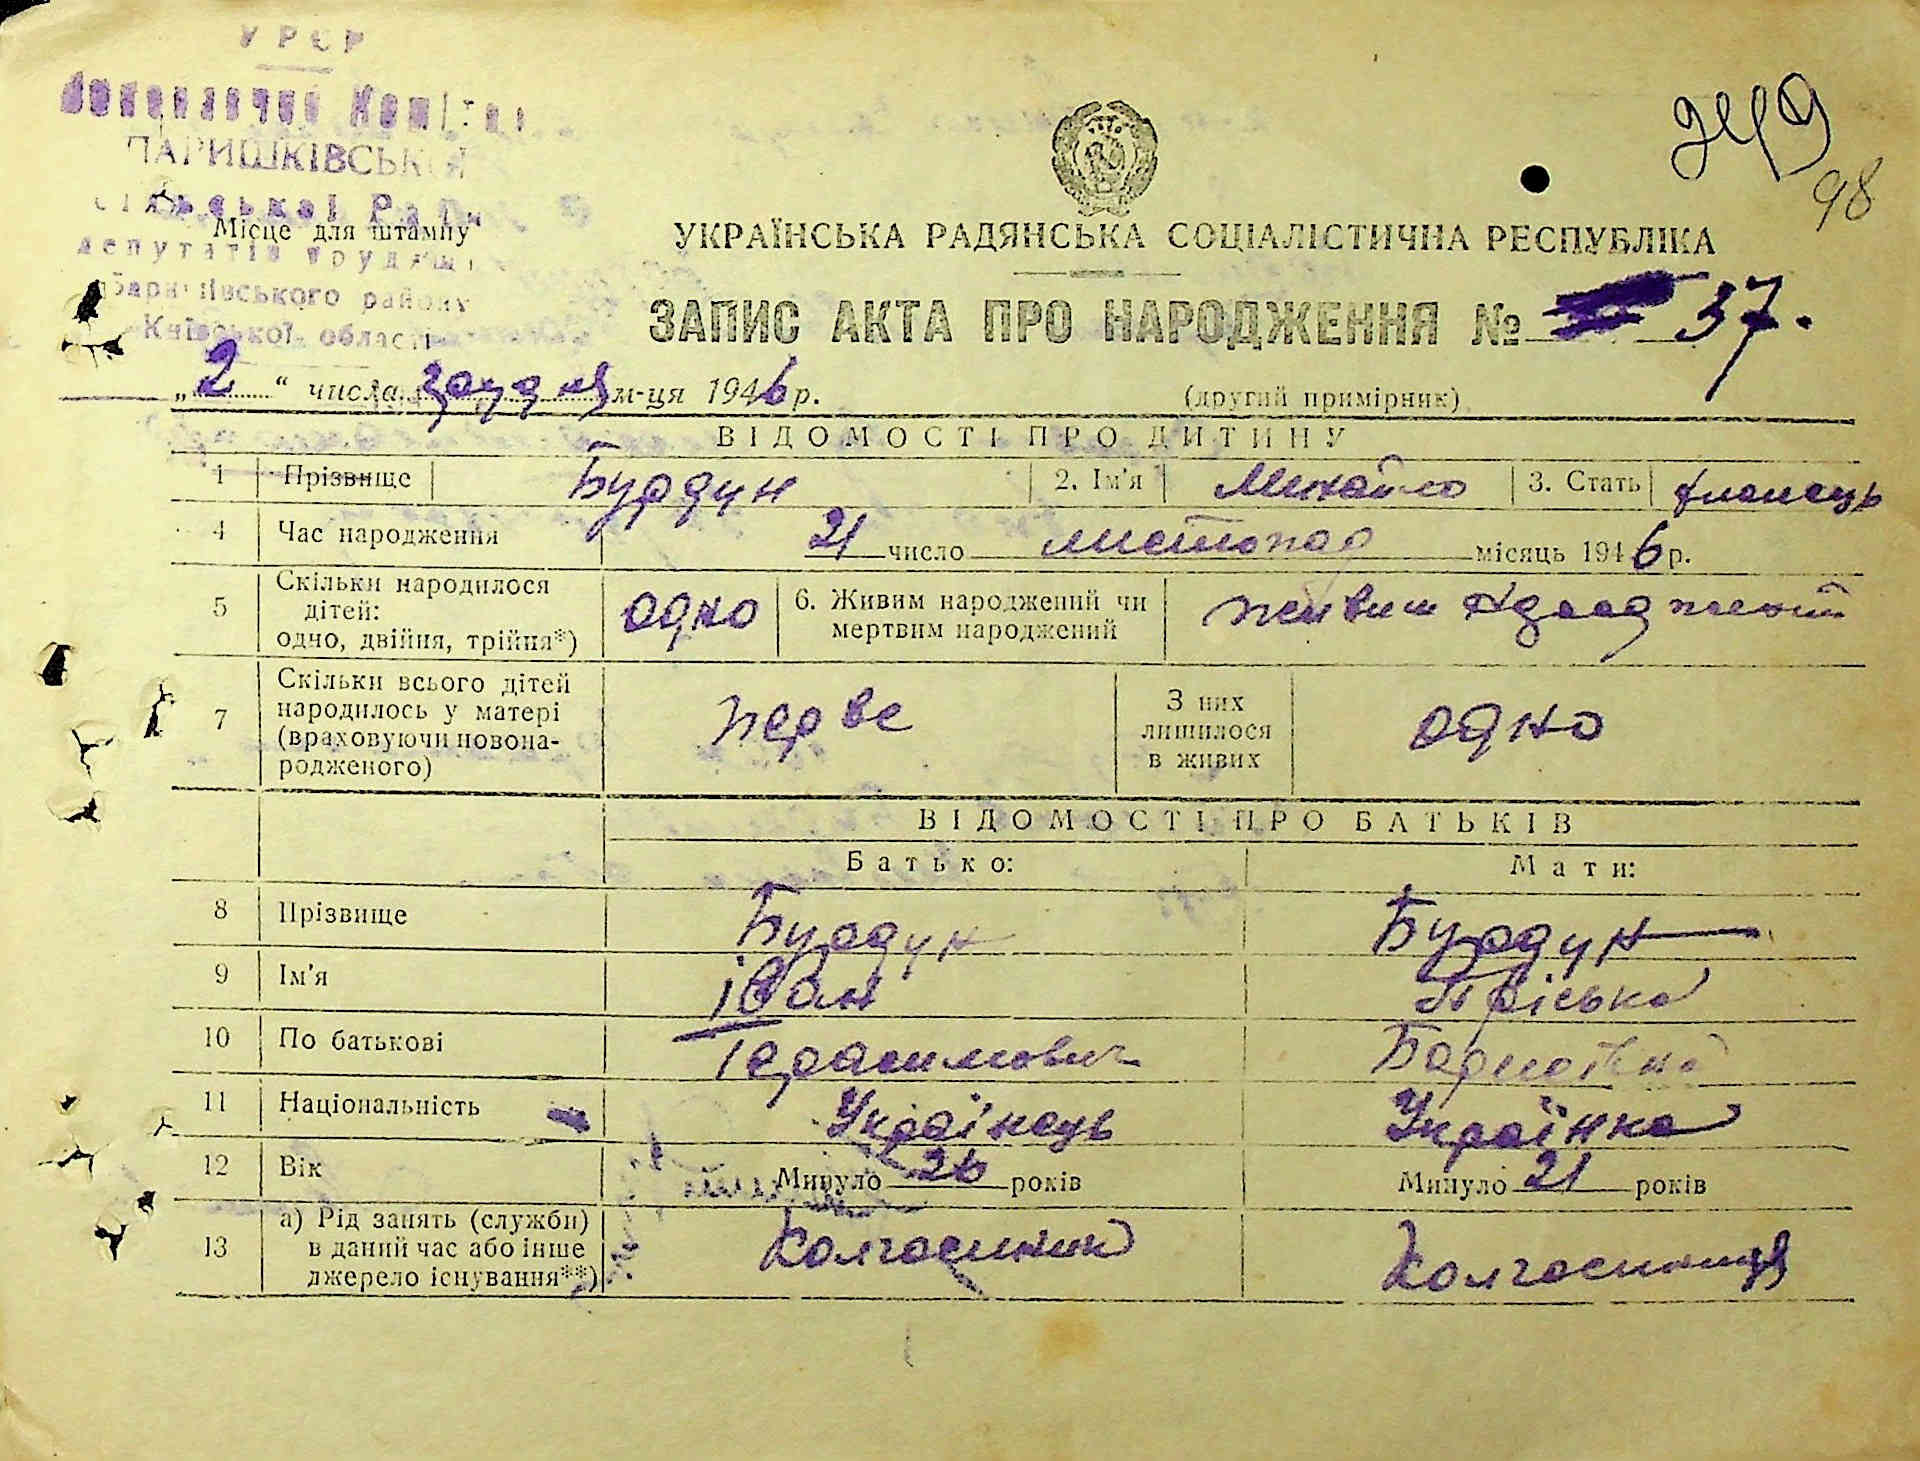 УРСР
Виконавчий Комітет
ПАРИШКІВСЬКОЇ
сільської Ради
Місце для штампу
депутатів трудящих
Баришівського району
Київської області
98
УКРАЇНСЬКА РАДЯНСЬКА СОЦІАЛІСТИЧНА РЕСПУБЛІКА
ЗАПИС АКТА ПРО НАРОДЖЕННЯ № 37.
„2“ числа грудня м-ця 1946 р. (другий примірник)
ВІДОМОСТІ ПРО ДИТИНУ
1 Прізвище Бурдун 2. Ім'я Михайло 3. Стать
4 Час народження 21 число листопад місяць 1946 р.
5 Скільки народилося дітей: одно, двійня, трійня*) одно 6. Живим народжений чи мертвим народжений живим
7 Скільки всього дітей народилось у матері (враховуючи новонародженого) перве З них лишилося в живих одно
ВІДОМОСТІ ПРО БАТЬКІВ
Батько: Мати:
8 Прізвище Бурдун Бурдун
9 Ім'я Іван Пріська
10 По батькові Герасимович
11 Національність Українець Українка
12 Вік Минуло 26 років Минуло 21 років
13 а) Рід занять (служби) в даний час або інше джерело існування**) Колгоспник Колгоспниця